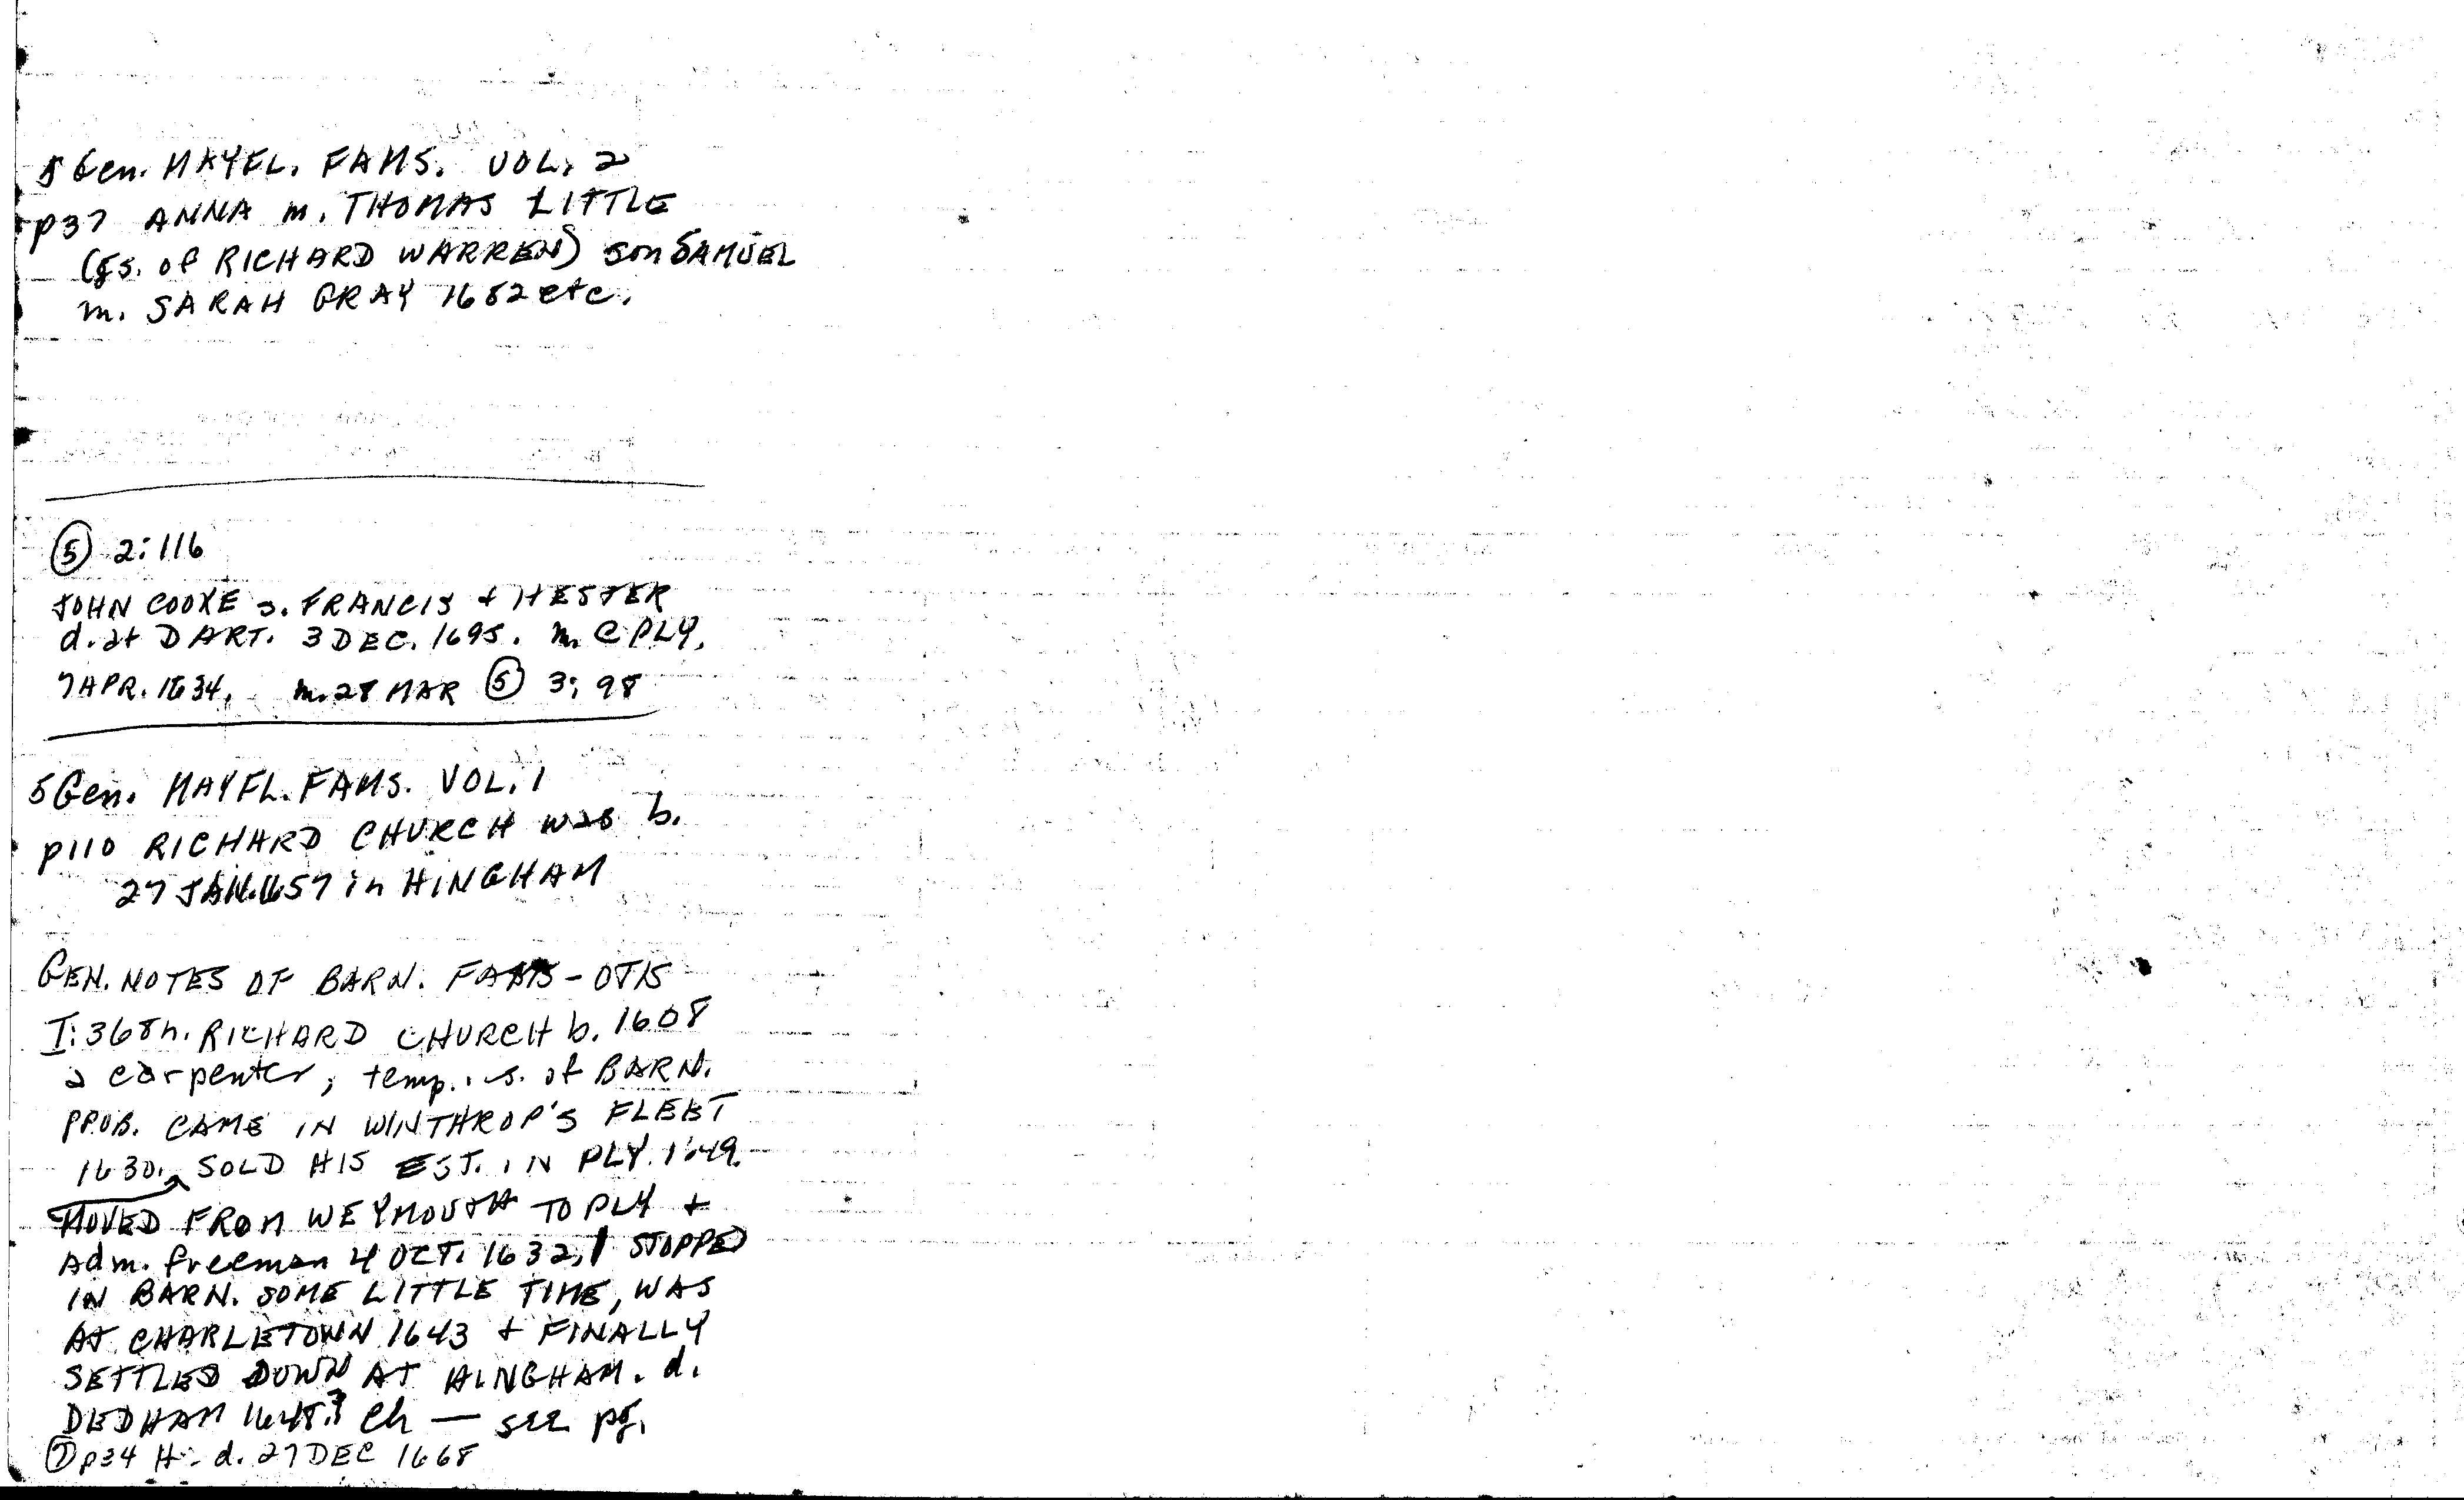 5 Gen. MAYFL. FAMS. VOL. 2
p37 ANNA m. THOMAS LITTLE
(gs. of RICHARD WARREN) son SAMUEL
m. SARAH GRAY 1682 etc.
⑤ 2:116
JOHN COOKE s. FRANCIS + HESTER
d. at DART. 3 DEC. 1695. m. @ PLY.
7 APR. 1634. m. 28 MAR ⑤ 3:98
5 Gen. MAYFL. FAMS. VOL. 1
p110 RICHARD CHURCH was b.
27 JAN. 1657 in HINGHAM
GEN. NOTES OF BARN. FAMS - OTIS
I: 368n. RICHARD CHURCH b. 1608
a carpenter, temp. s. of BARN.
PROB. CAME IN WINTHROP'S FLEET
1630. SOLD HIS EST. IN PLY. 1649.
MOVED FROM WEYMOUTH TO PLY +
Adm. freeman 4 OCT. 1632. STOPPED
IN BARN. SOME LITTLE TIME, WAS
AT CHARLETOWN 1643 + FINALLY
SETTLED DOWN AT HINGHAM. d.
DEDHAM Ch — see pg.
⑦ p34 d. 27 DEC 1668